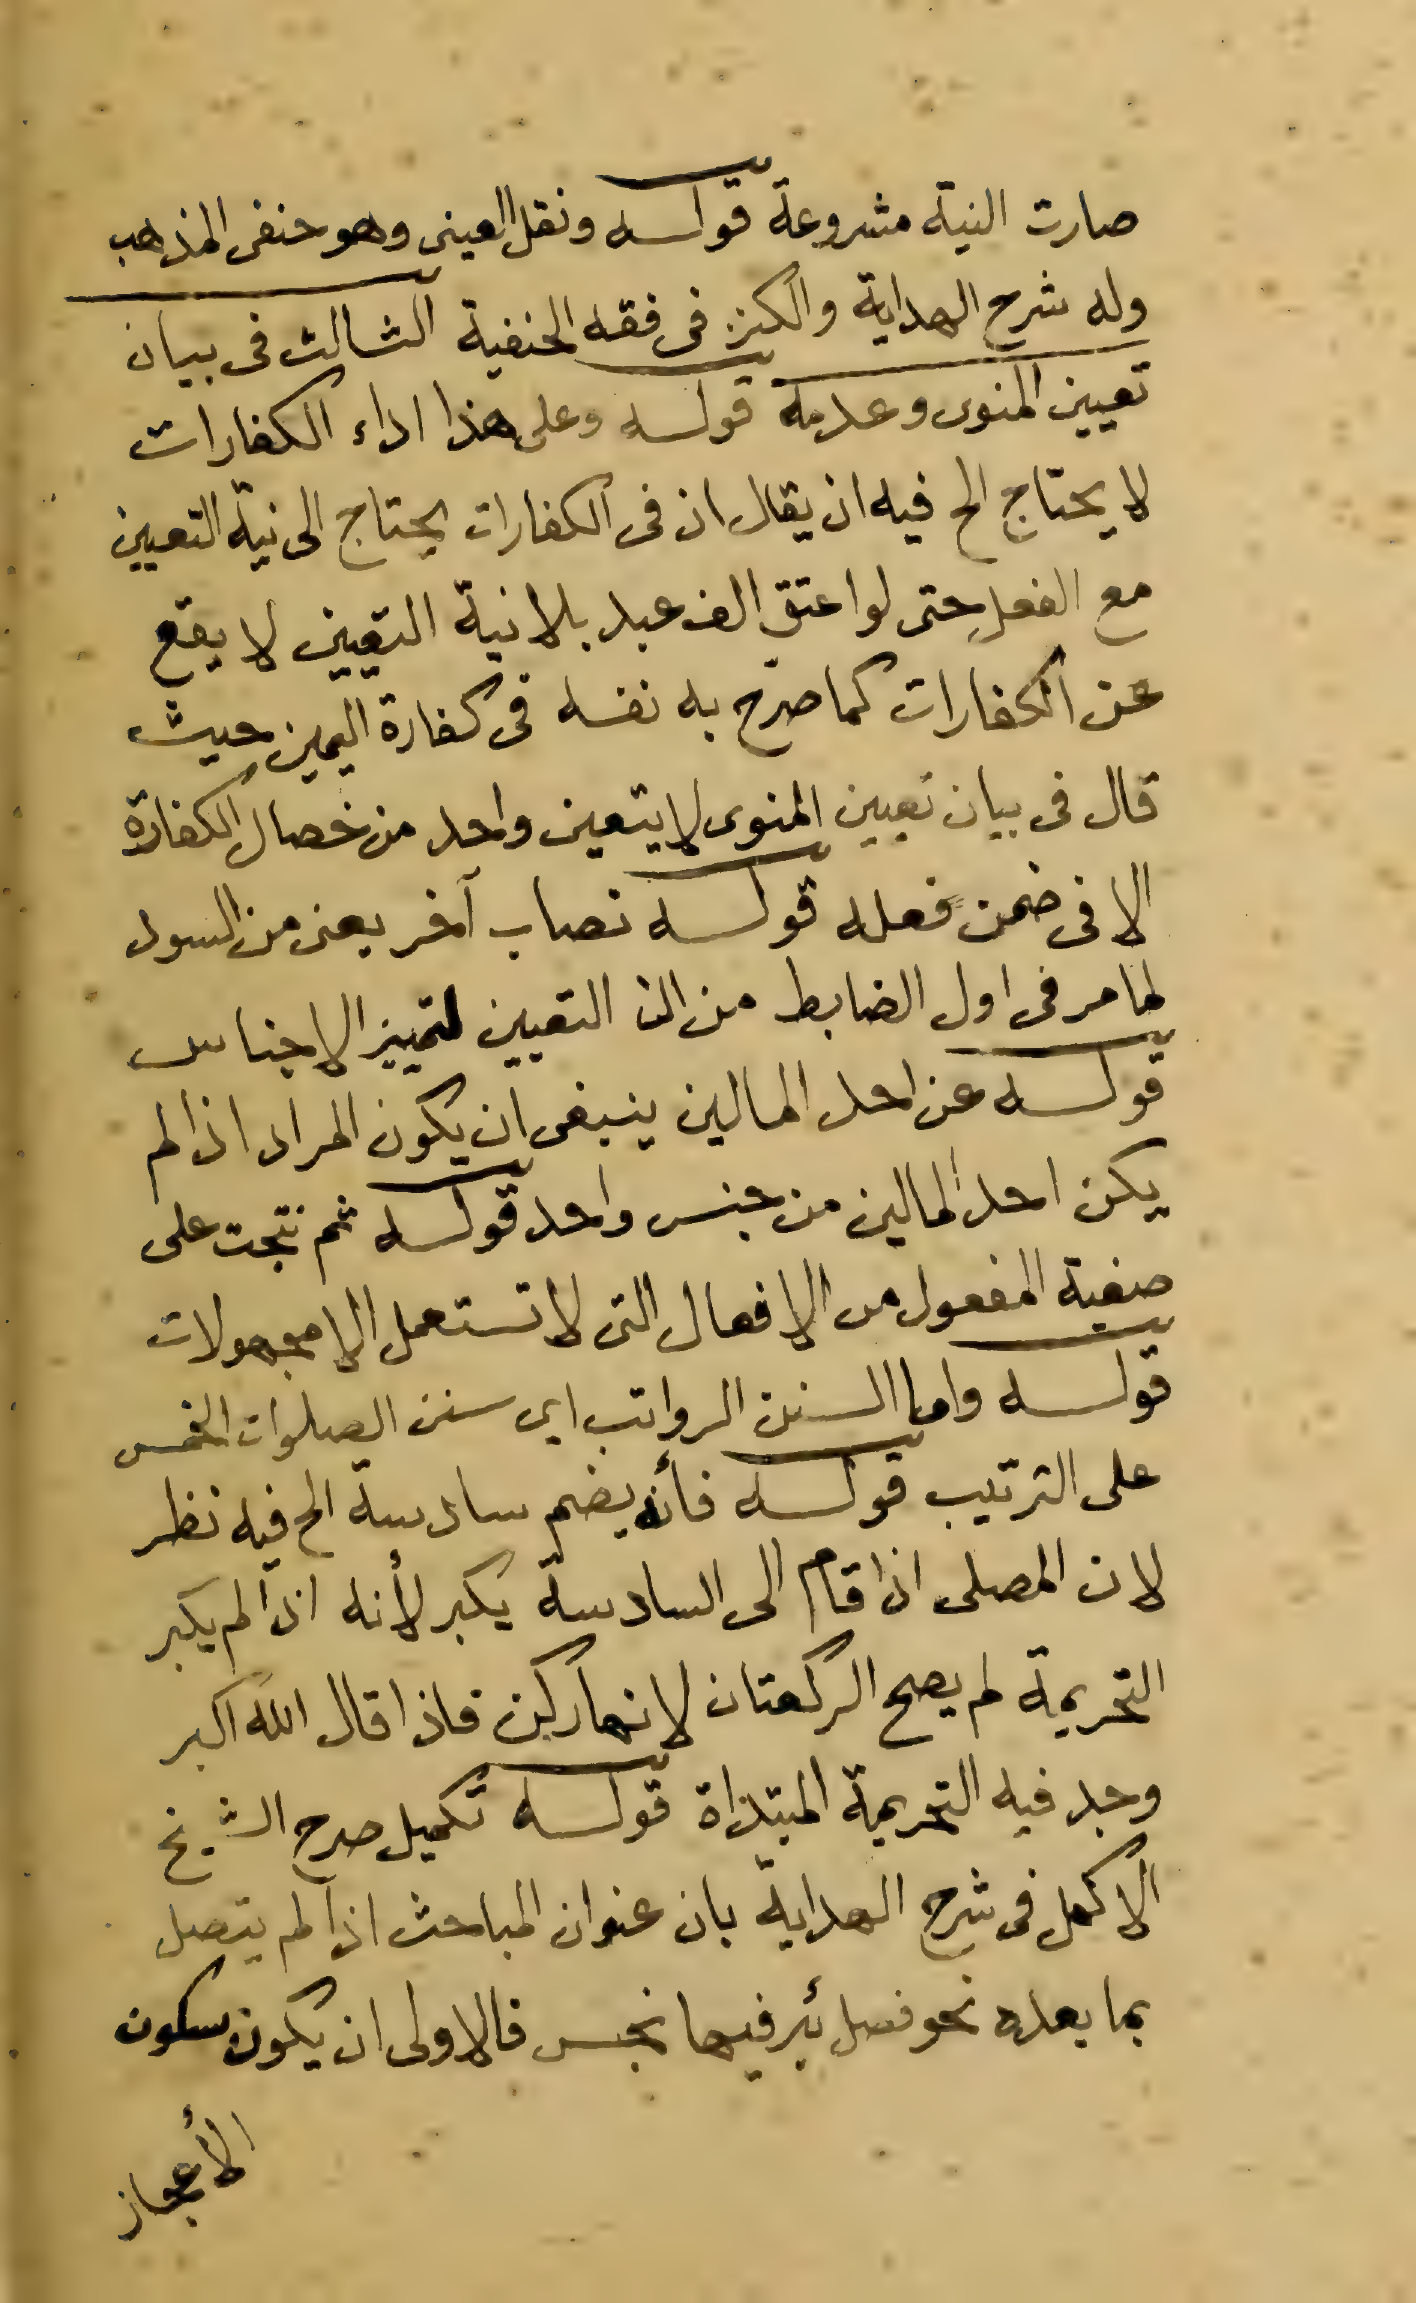 صارت النية مشروعة قوله ونقل العينى وهو حنفى المذهب
وله شرح الهداية والكنز فى فقه الحنفية الثالث فى بيان
تعيين المنوى وعدمه قوله وعلى هذا اداء الكفارات
لا يحتاج الخ فيه ان يقال ان فى الكفارات يحتاج الى نية التعيين
مع الفعل حتى لو اعتق الف عبد بلا نية التعيين لا يقع
عن الكفارات كما صرح به نفسه فى كفارة اليمين حيث
قال فى بيان تعيين المنوى لا يتعين واحد من خصال الكفارة
الا فى ضمن فعله قوله نصاب آخر يعنى من السود
لما مر فى اول الضابط من ان التعيين لتمييز الاجناس
قوله عن احد المالين ينبغى ان يكون المراد اذا لم
يكن احد المالين من جنس واحد قوله ثم نتجت على
صيغة المفعول من الافعال التى لا تستعمل الا مجهولات
قوله واما السنن الرواتب اى سنن الصلوات الخمس
على الترتيب قوله فأنه يضم سادسة الخ فيه نظر
لان المصلى اذا قام الى السادسة يكبر لأنه اذا لم يكبر
التحريمة لم يصح الركعتان لانها ركن فاذا قال الله اكبر
وجد فيه التحريمة المبتداة قوله تكميل صرح الشيخ
الاكمل فى شرح الهداية بان عنوان المباحث اذا لم يتصل
بما بعده نحو فصل بئر فيها نجس فالاولى ان يكون سكون
الأعجاز